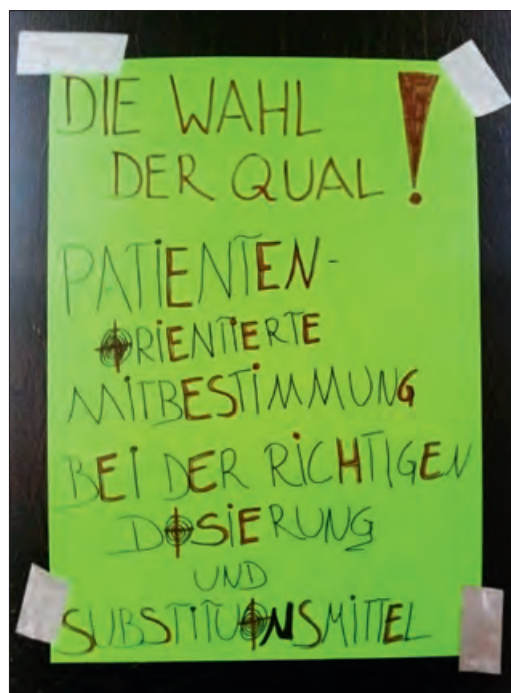 DIE WAHL
DER QUAL!
PATiENTEN-
ORiENTiERTE
MiTBESTiMMUNG
BEi DER RiCHTIGEN
DOSiERUNG
UND
SUBSTiTUONSMiTTEL